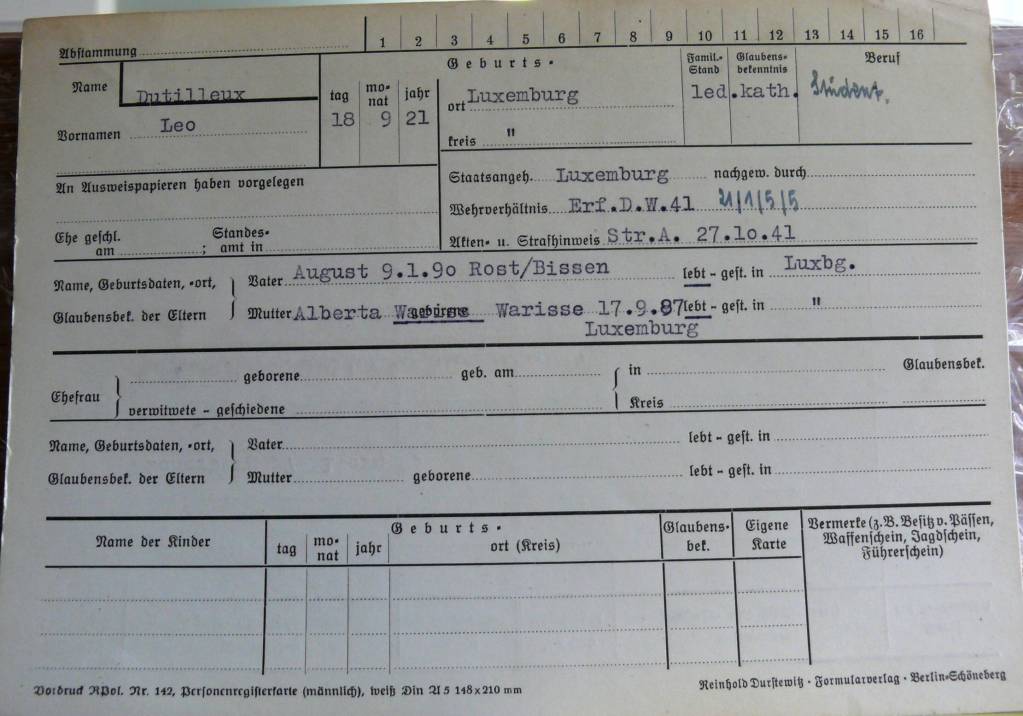 Abstammung 1 2 3 4 5 6 7 8 9 10 11 12 13 14 15 16
Name Dutilleux
Vornamen Leo
Geburts-
tag monat jahr
18 9 21
ort Luxemburg
kreis "
Famil.-Stand
led.
Glaubensbekenntnis
kath.
Beruf
Student.
An Ausweispapieren haben vorgelegen
Ehe geschl. am ; Standesamt in
Staatsangeh. Luxemburg nachgew. durch
Wehrverhältnis Erf.D.W.41 21/1/5/5
Akten- u. Strafhinweis Str.A. 27.10.41
Name, Geburtsdaten, -ort,
Glaubensbek. der Eltern
Vater August 9.1.90 Rost/Bissen lebt - gest. in Luxbg.
Mutter Alberta geborene Warisse 17.9.87 lebt - gest. in "
Luxemburg
Ehefrau
geborene geb. am in Glaubensbek.
verwitwete - geschiedene Kreis
Name, Geburtsdaten, -ort,
Glaubensbek. der Eltern
Vater lebt - gest. in
Mutter geborene lebt - gest. in
Name der Kinder
Geburts-
tag monat jahr ort (Kreis)
Glaubensbek.
Eigene Karte
Vermerke (z.B. Besitz v. Pässen,
Waffenschein, Jagdschein,
Führerschein)
Vordruck RPol. Nr. 142, Personenregisterkarte (männlich), weiß Din A 5 148x210 mm
Reinhold Durstewitz · Formularverlag · Berlin-Schöneberg